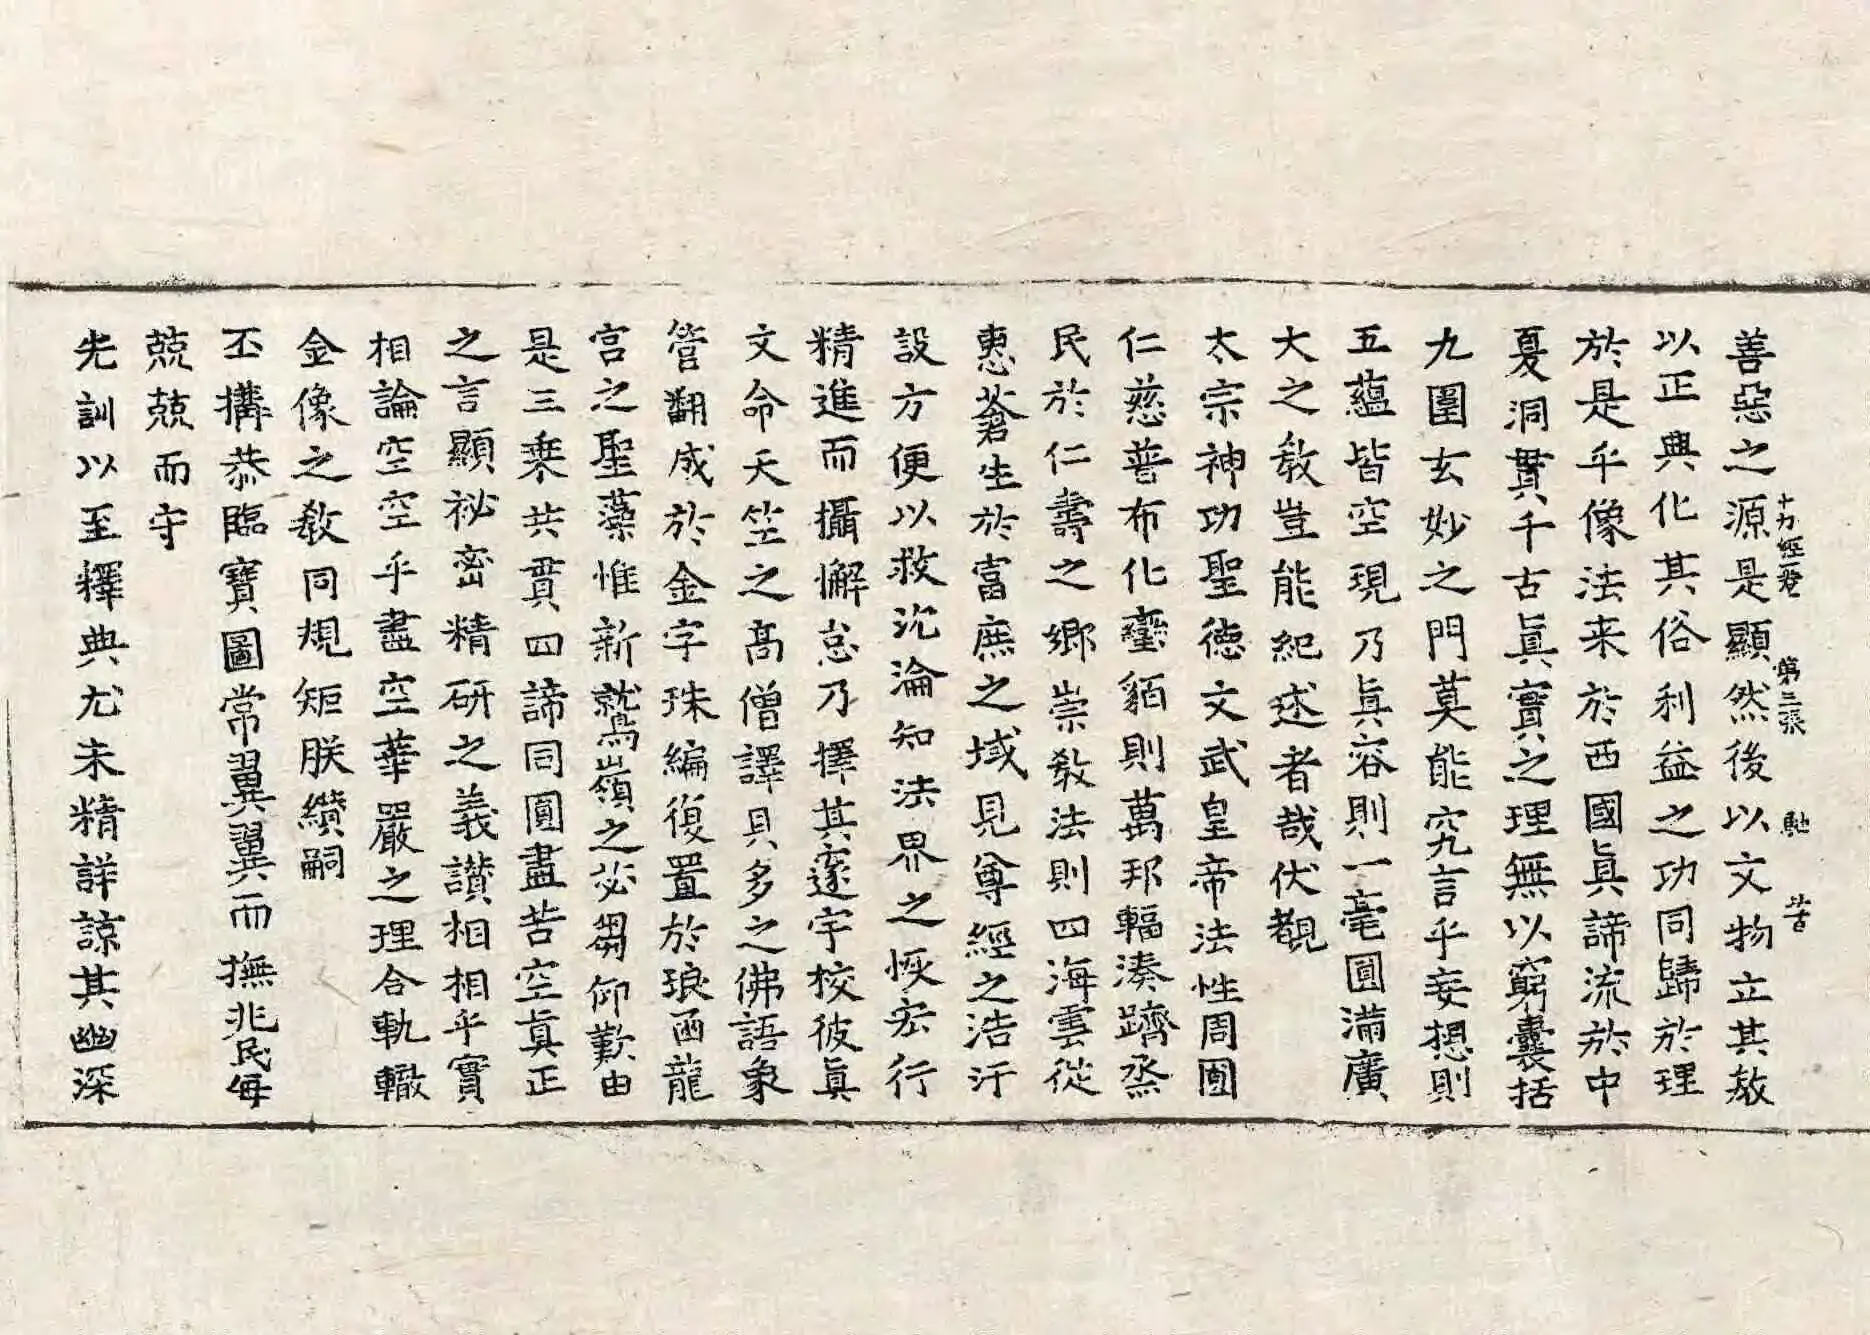 善惡之源是顯然後以文物立其敎
十力經一卷　第二張　馳
以正典化其俗利益之功同歸於理
於是乎像法来於西國眞諦流於中
夏洞貫千古眞實之理無以窮囊括
九圍玄妙之門莫能究言乎妄想則
五蘊皆空現乃眞容則一毫圓滿廣
大之敎豈能紀述者哉伏覩
太宗神功聖德文武皇帝法性周圓
仁慈普布化蠻貊則萬邦輻湊躋烝
民於仁壽之鄉崇敎法則四海雲從
惠蒼生於富庶之域見尊經之浩汗
設方便以救沉淪知法界之恢宏行
精進而攝懈怠乃擇其邃宇校彼眞
文命天竺之高僧譯貝多之佛語象
管翻成於金字珠編復置於琅函龍
宮之聖藻惟新鷲嶺之苾蒭仰歎由
是三乗共貫四諦同圓盡苦空眞正
之言顯祕密精研之義讃相相乎實
相論空空乎盡空華嚴之理合軌轍
金像之敎同規矩朕纉嗣
丕搆恭臨寶圖常翼翼而撫兆民每
兢兢而守
先訓以至釋典尤未精詳諒其幽深